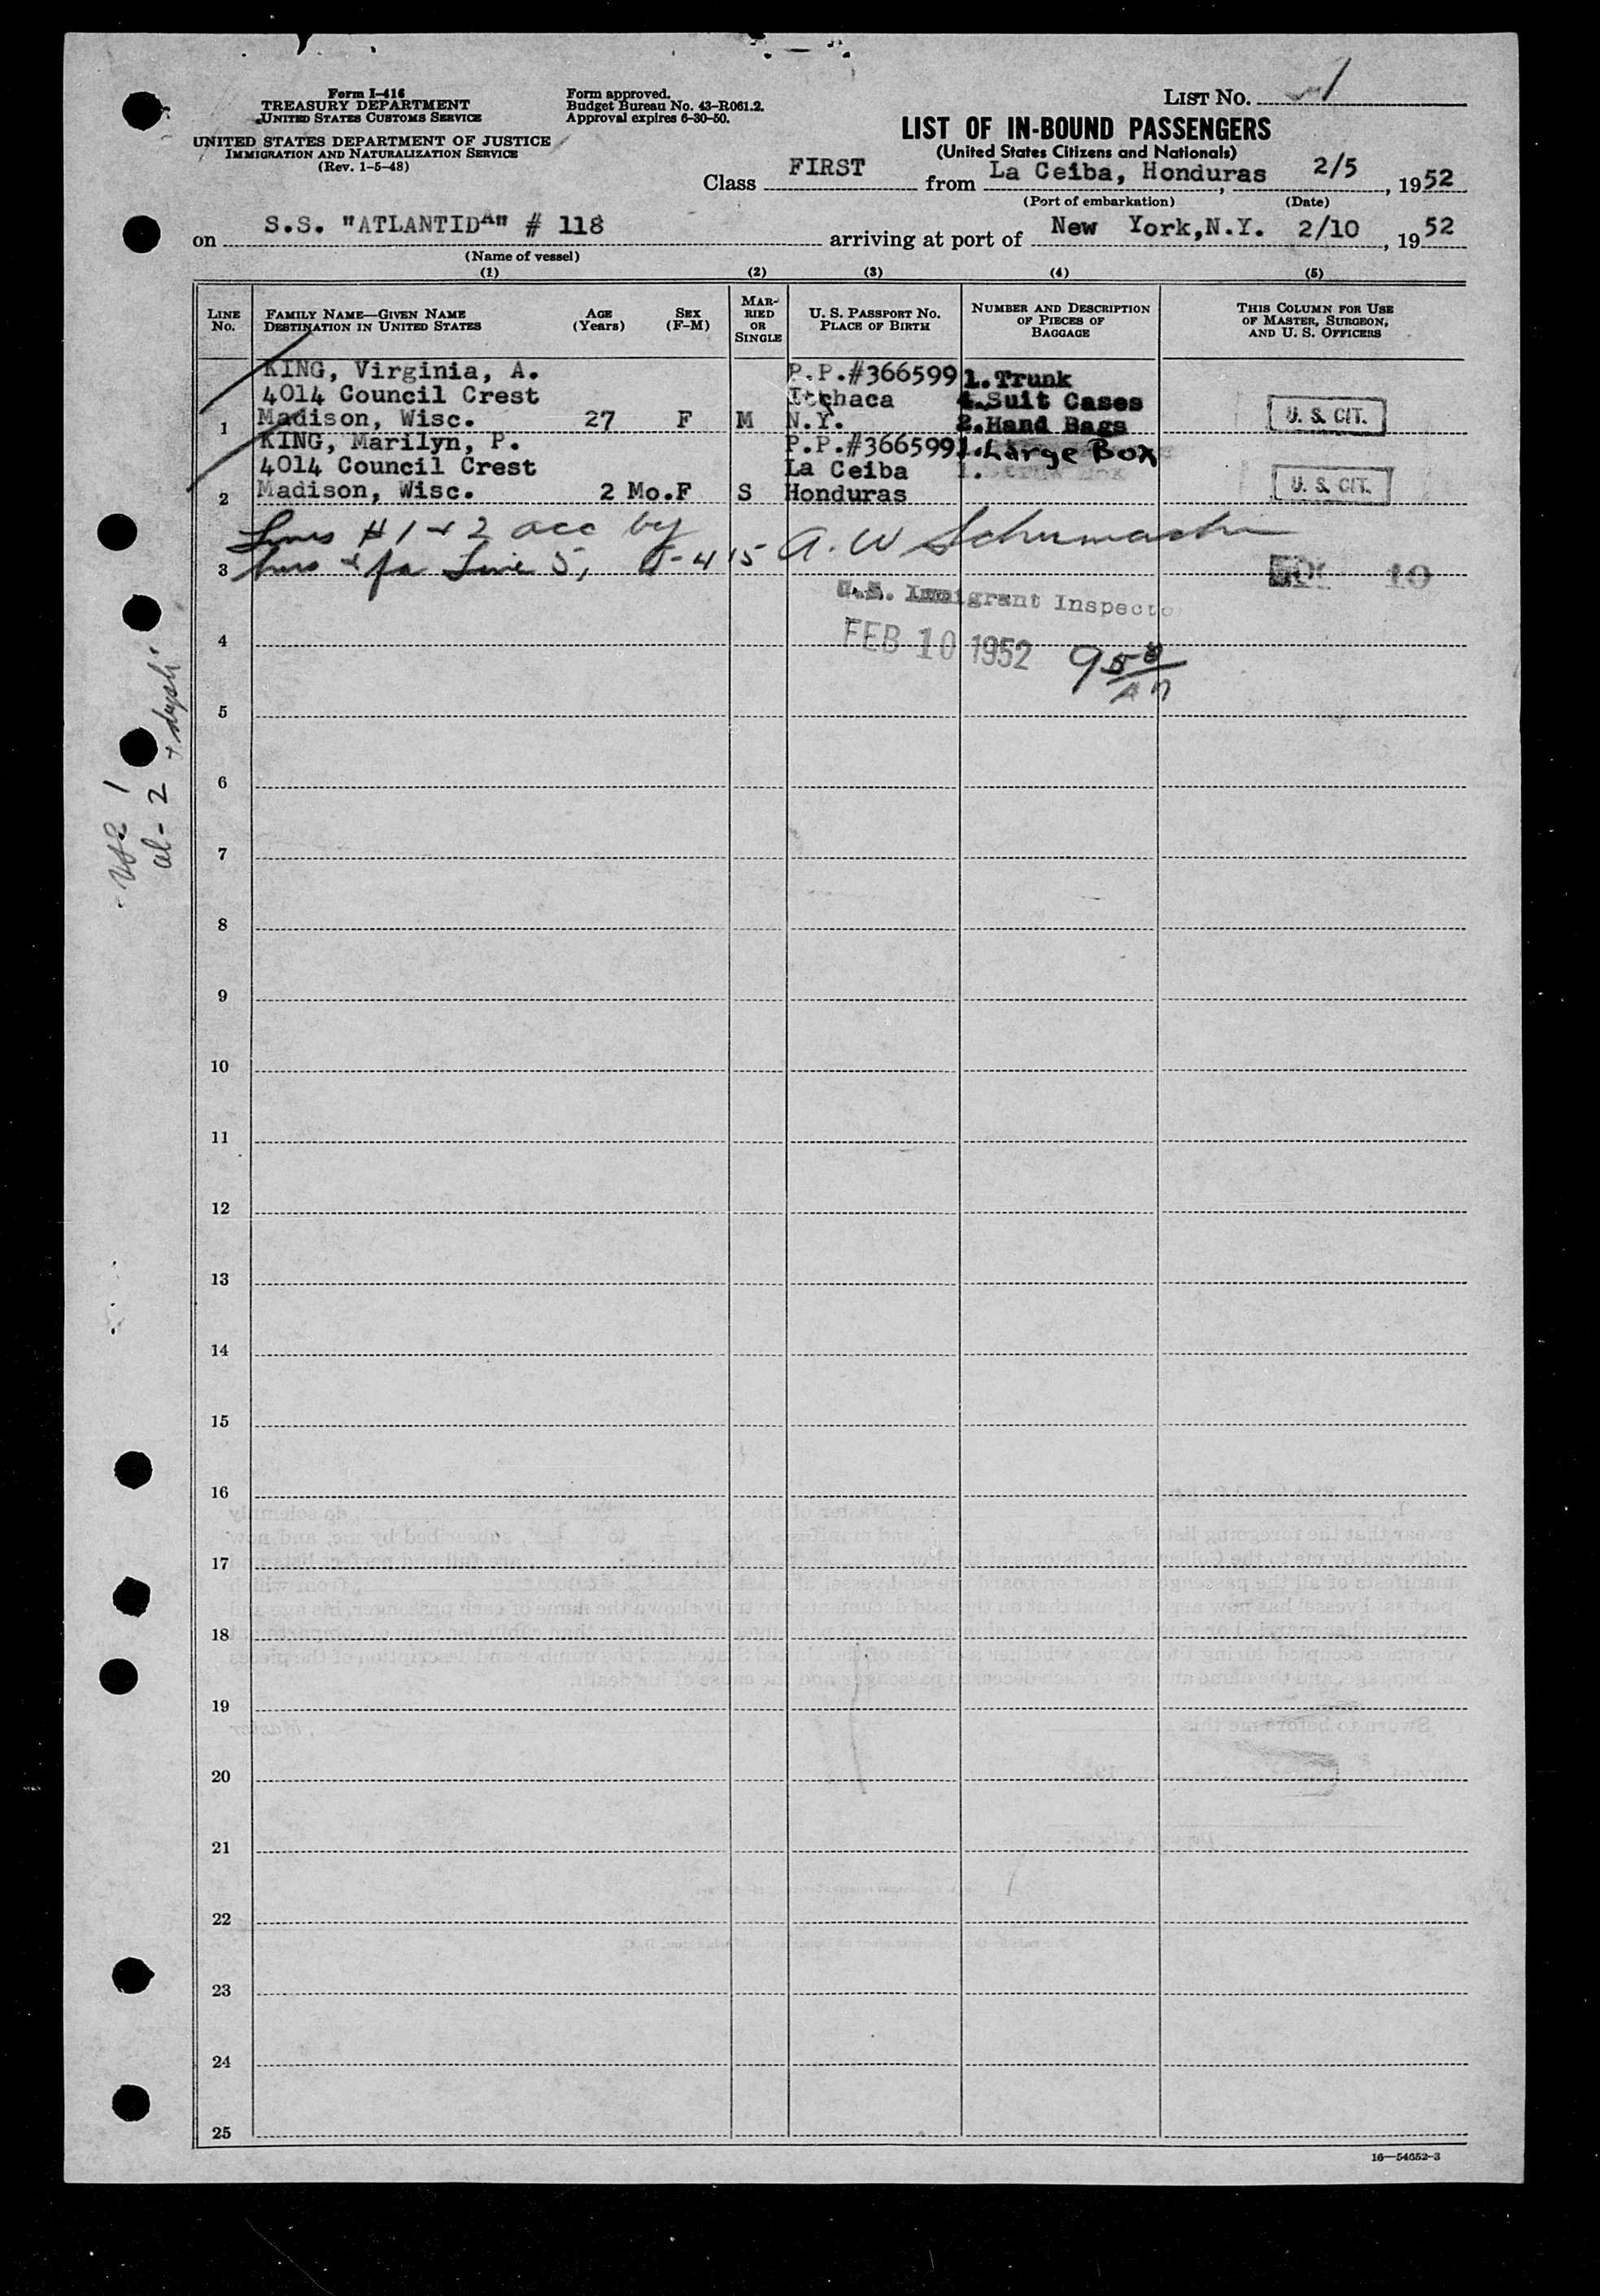 Form I-416
TREASURY DEPARTMENT
UNITED STATES CUSTOMS SERVICE
UNITED STATES DEPARTMENT OF JUSTICE
IMMIGRATION AND NATURALIZATION SERVICE
(Rev. 1-5-48)
Form approved.
Budget Bureau No. 43-R061.2.
Approval expires 6-30-50.
LIST NO. 1
LIST OF IN-BOUND PASSENGERS
(United States Citizens and Nationals)
Class FIRST from La Ceiba, Honduras, 2/5, 1952
(Port of embarkation) (Date)
on S.S. "ATLANTIDA" # 118 arriving at port of New York,N.Y. 2/10, 1952
(Name of vessel)
(1) (2) (3) (4) (5)
LINE NO.
FAMILY NAME—GIVEN NAME
DESTINATION IN UNITED STATES
AGE (Years)
SEX (F-M)
MAR-
RIED
OR
SINGLE
U. S. PASSPORT NO.
PLACE OF BIRTH
NUMBER AND DESCRIPTION
OF PIECES OF
BAGGAGE
THIS COLUMN FOR USE
OF MASTER, SURGEON,
AND U. S. OFFICERS
KING, Virginia, A. P.P.#366599 1.Trunk
4014 Council Crest Ithaca 4.Suit Cases
1 Madison, Wisc. 27 F M N.Y. 2.Hand Bags U. S. CIT.
KING, Marilyn, P. P.P.#366599 1.Large Box
4014 Council Crest La Ceiba 1.
2 Madison, Wisc. 2 Mo.F S Honduras U. S. CIT.
Lines #1 & 2 acc by A. W Schumacher
3 hus & fa Line 5, I-415 10
U.S. Immigrant Inspector
4 FEB 10 1952 9 50 AM
5
6
7
8
9
10
11
12
13
14
15
16
17
18
19
20
21
22
23
24
25
16—54652-3